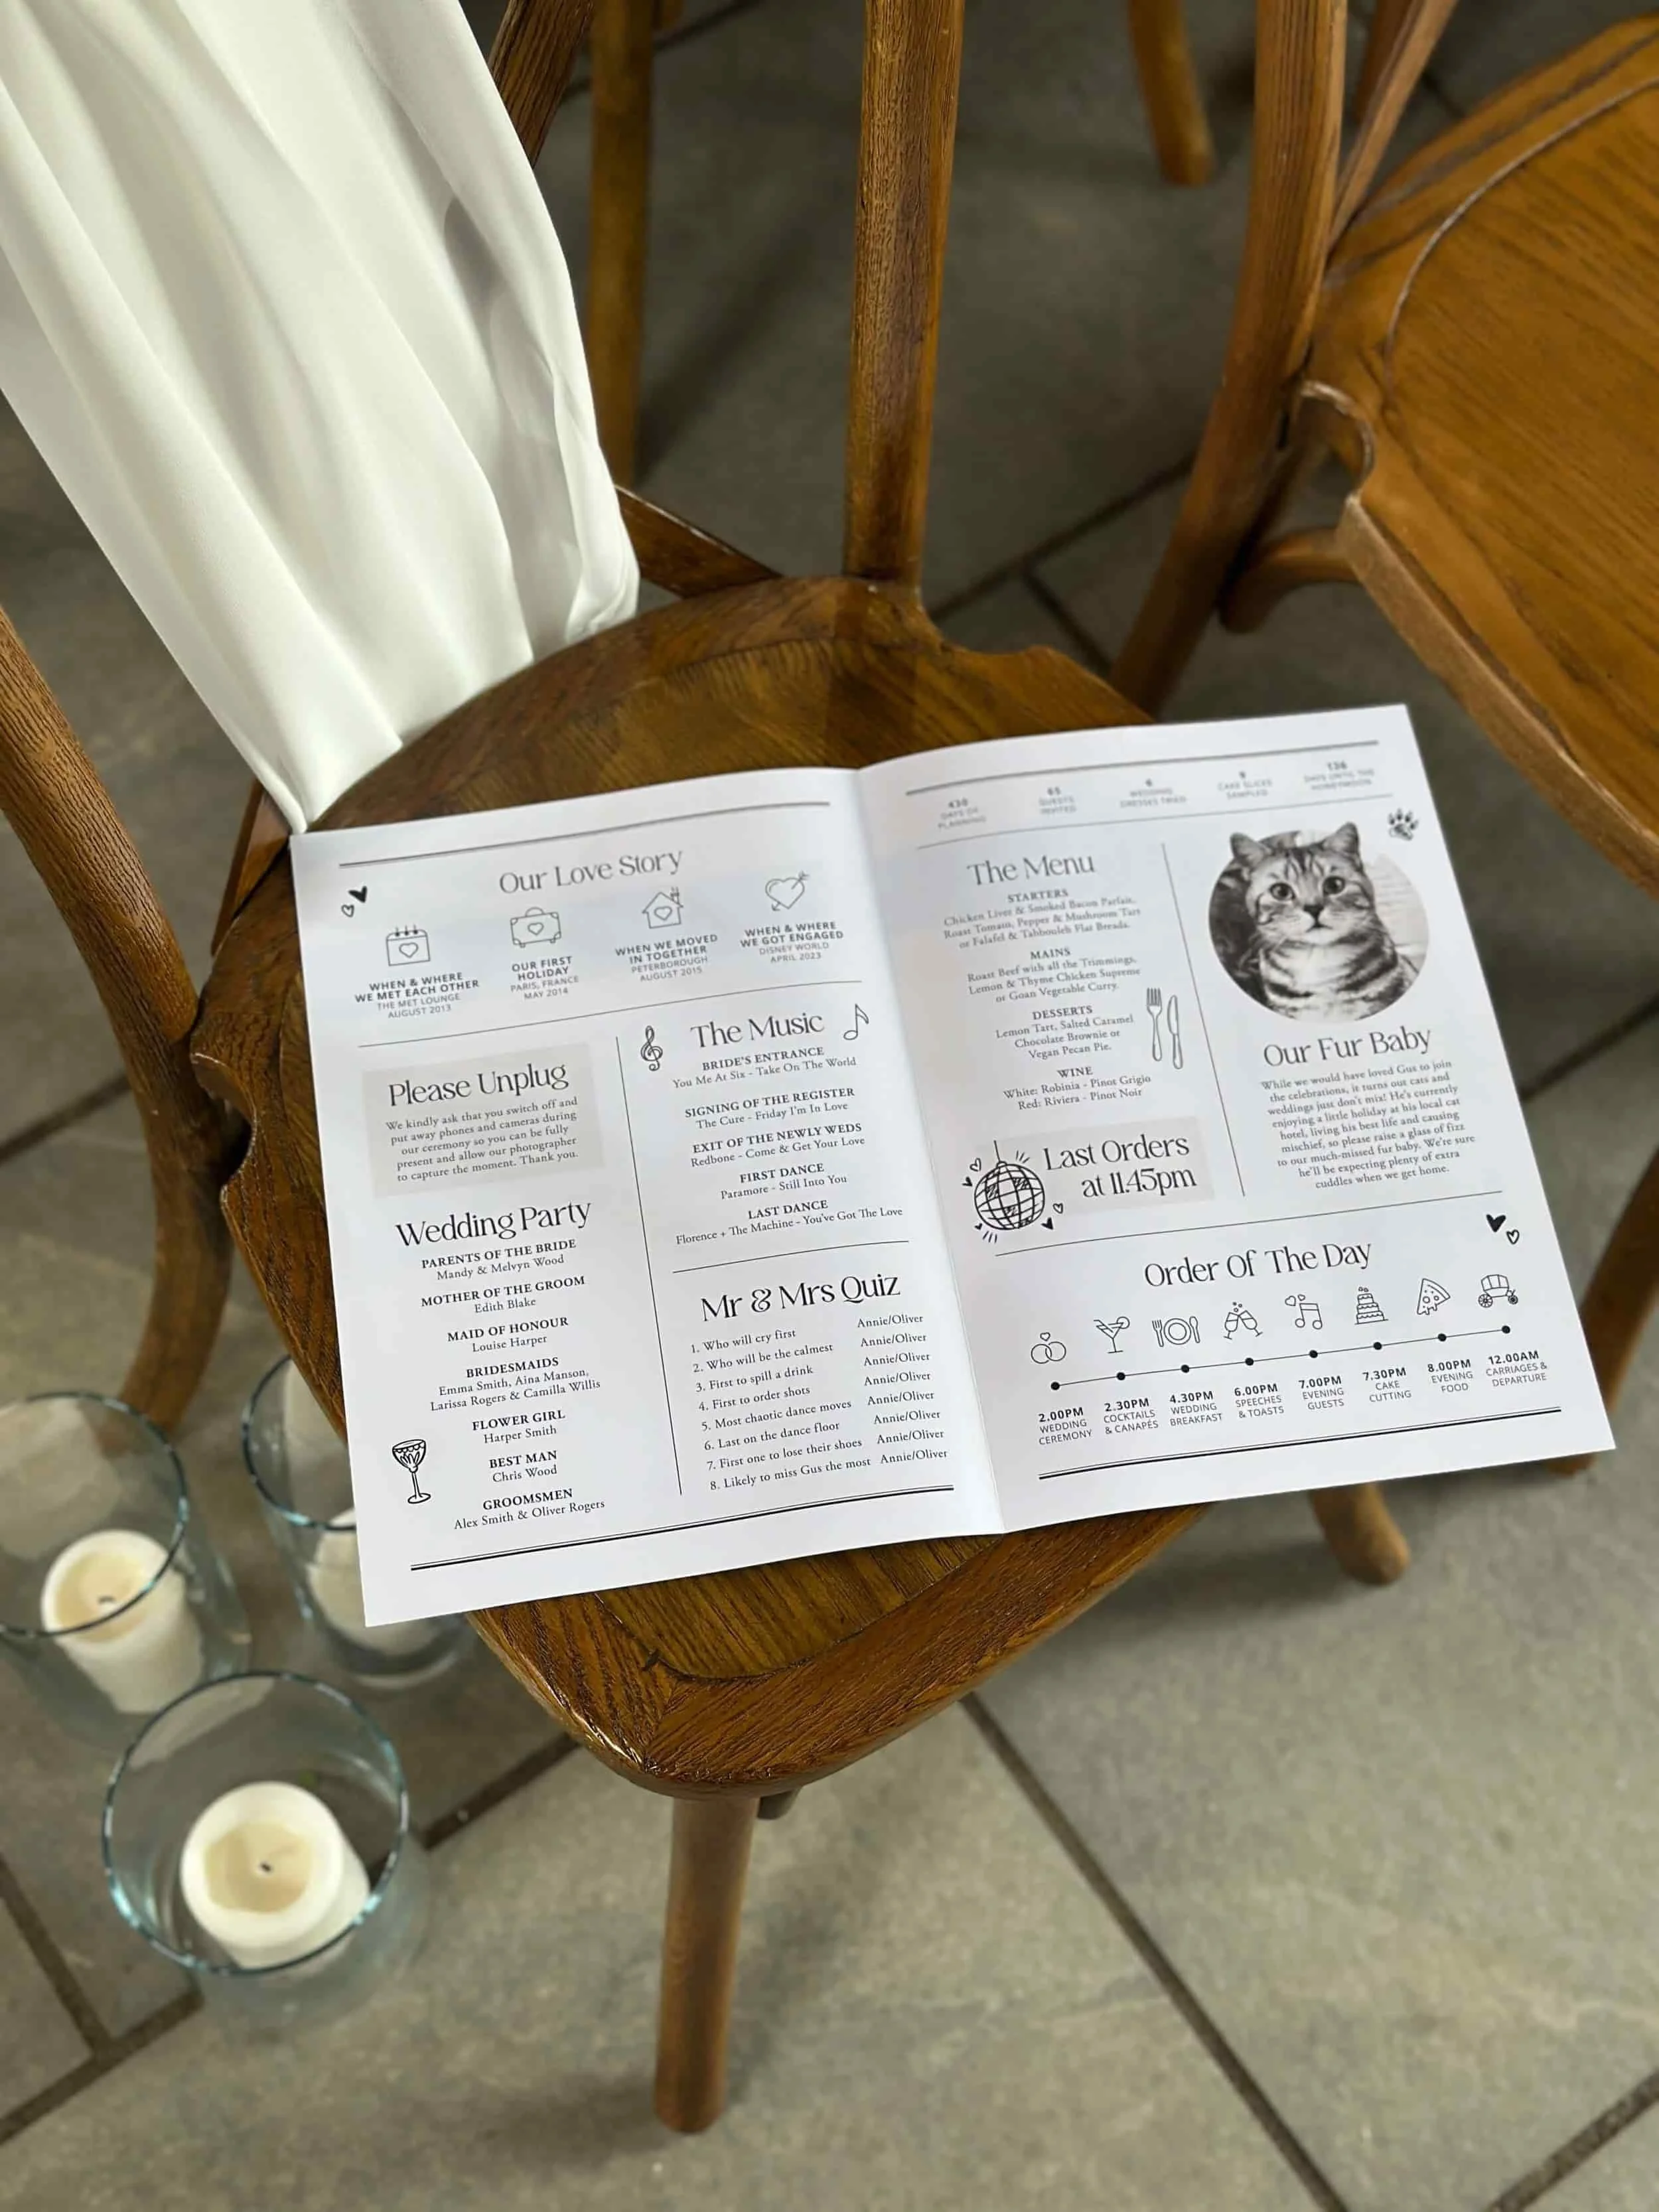 Our Love Story
WHEN & WHERE
WE MET EACH OTHER
THE MET LOUNGE
AUGUST 2013
OUR FIRST
HOLIDAY
PARIS, FRANCE
MAY 2014
WHEN WE MOVED
IN TOGETHER
PETERBOROUGH
AUGUST 2015
WHEN & WHERE
WE GOT ENGAGED
DISNEY WORLD
APRIL 2023
Please Unplug
We kindly ask that you switch off and
put away phones and cameras during
our ceremony so you can be fully
present and allow our photographer
to capture the moment. Thank you.
Wedding Party
PARENTS OF THE BRIDE
Mandy & Melvyn Wood
MOTHER OF THE GROOM
Edith Blake
MAID OF HONOUR
Louise Harper
BRIDESMAIDS
Emma Smith, Aina Manson,
Larissa Rogers & Camilla Willis
FLOWER GIRL
Harper Smith
BEST MAN
Chris Wood
GROOMSMEN
Alex Smith & Oliver Rogers
The Music
BRIDE'S ENTRANCE
You Me At Six - Take On The World
SIGNING OF THE REGISTER
The Cure - Friday I'm In Love
EXIT OF THE NEWLY WEDS
Redbone - Come & Get Your Love
FIRST DANCE
Paramore - Still Into You
LAST DANCE
Florence + The Machine - You've Got The Love
Mr & Mrs Quiz
1. Who will cry first Annie/Oliver
2. Who will be the calmest Annie/Oliver
3. First to spill a drink Annie/Oliver
4. First to order shots Annie/Oliver
5. Most chaotic dance moves Annie/Oliver
6. Last on the dance floor Annie/Oliver
7. First one to lose their shoes Annie/Oliver
8. Likely to miss Gus the most Annie/Oliver
430
DAYS OF
PLANNING
65
GUESTS
INVITED
6
WEDDING
DRESSES TRIED
9
CAKE SLICES
SAMPLED
136
DAYS UNTIL THE
HONEYMOON
The Menu
STARTERS
Chicken Liver & Smoked Bacon Parfait,
Roast Tomato, Pepper & Mushroom Tart
or Falafel & Tabbouleh Flat Breads.
MAINS
Roast Beef with all the Trimmings,
Lemon & Thyme Chicken Supreme
or Goan Vegetable Curry.
DESSERTS
Lemon Tart, Salted Caramel
Chocolate Brownie or
Vegan Pecan Pie.
WINE
White: Robinia - Pinot Grigio
Red: Riviera - Pinot Noir
Last Orders
at 11.45pm
Our Fur Baby
While we would have loved Gus to join
the celebrations, it turns out cats and
weddings just don't mix! He's currently
enjoying a little holiday at his local cat
hotel, living his best life and causing
mischief, so please raise a glass of fizz
to our much-missed fur baby. We're sure
he'll be expecting plenty of extra
cuddles when we get home.
Order Of The Day
2.00PM
WEDDING
CEREMONY
2.30PM
COCKTAILS
& CANAPÉS
4.30PM
WEDDING
BREAKFAST
6.00PM
SPEECHES
& TOASTS
7.00PM
EVENING
GUESTS
7.30PM
CAKE
CUTTING
8.00PM
EVENING
FOOD
12.00AM
CARRIAGES &
DEPARTURE